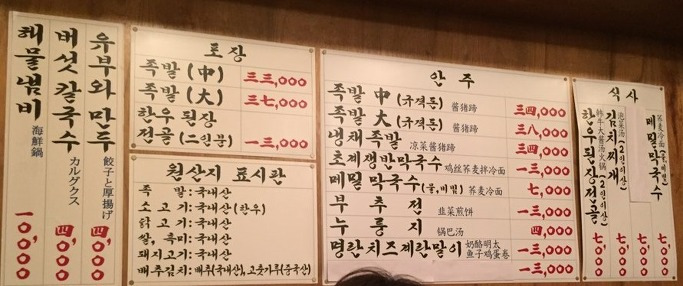 해물냄비 海鮮鍋 一0,000
버섯 칼국수 カルグクス 四,000
유부와 만두 餃子と厚揚げ 四,000
포장
족발 (中) 三三,000
족발 (大) 三七,000
한우 된장
전골 (二인분) 一三,000
원산지 표시판
족 발:국내산
소고기:국내산 (한우)
닭고기:국내산
쌀, 흑미:국내산
돼지고기:국내산
배추김치:배추(국내산), 고춧가루(중국산)
안주
족발 中 (규격품) 酱猪蹄 三四,000
족발 大 (규격품) 酱猪蹄 三八,000
냉채족발 凉菜酱猪蹄 三四,000
초계쟁반막국수 鸡丝荞麦拌冷面 一三,000
메밀 막국수 (물,비빔) 荞麦冷面 七,000
부추전 韭菜煎饼 一三,000
누룽지 锅巴汤 四,000
명란치즈계란말이 奶酪明太鱼子鸡蛋卷 一三,000
식사
메밀막국수 荞麦冷面(물,비빔) 七,000
김치찌개 泡菜汤 (2인이상) 七,000
한우된장전골 (2인이상) 七,000